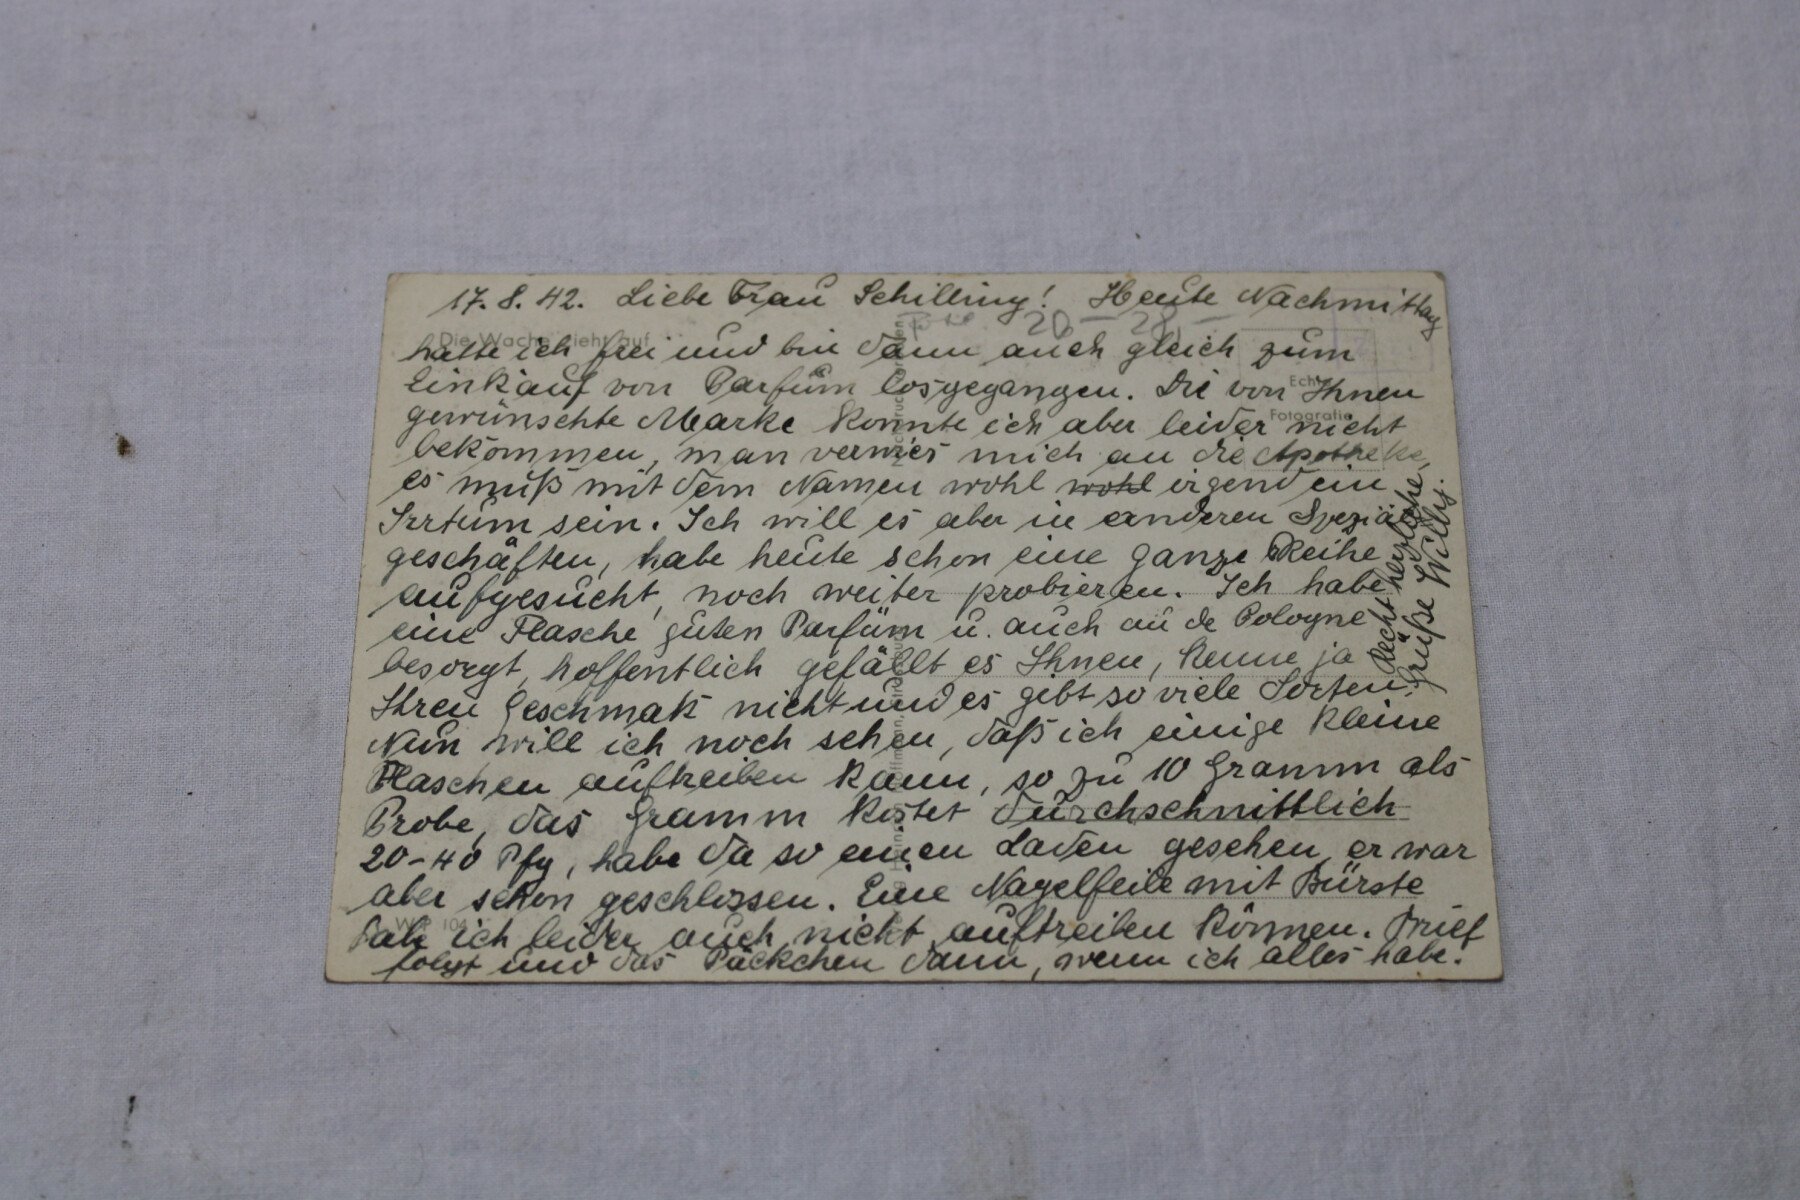 17.8.42. Liebe Frau Schilling! Heute Nachmittag
20 – 28,–
Die Wache zieht auf
hatte ich frei und bin dann auch gleich zum
Einkauf von Parfüm losgegangen. Die von Ihnen
Echte
Fotografie
gewünschte Marke konnte ich aber leider nicht
bekommen, man verwies mich an die Apotheke,
es muß mit dem Namen wohl wohl irgend ein
Irrtum sein. Ich will es aber in anderen Spezial
geschäften, habe heute schon eine ganze Reihe
aufgesucht, noch weiter probieren. Ich habe
eine Flasche guten Parfüm u. auch au de Cologne
besorgt, hoffentlich gefällt es Ihnen, kenne ja
Ihren Geschmak nicht und es gibt so viele Sorten.
Nun will ich noch sehen, daß ich einige kleine
Flaschen auftreiben kann, so zu 10 Gramm als
Probe, das Gramm kostet durchschnittlich
20–40 Pfg, habe da so einen Laden gesehen, er war
aber schon geschlossen. Eine Nagelfeile mit Bürste
hab ich leider auch nicht auftreiben können. Brief
folgt und das Päckchen dann, wenn ich alles habe.
Recht herzliche
Grüße Willy.